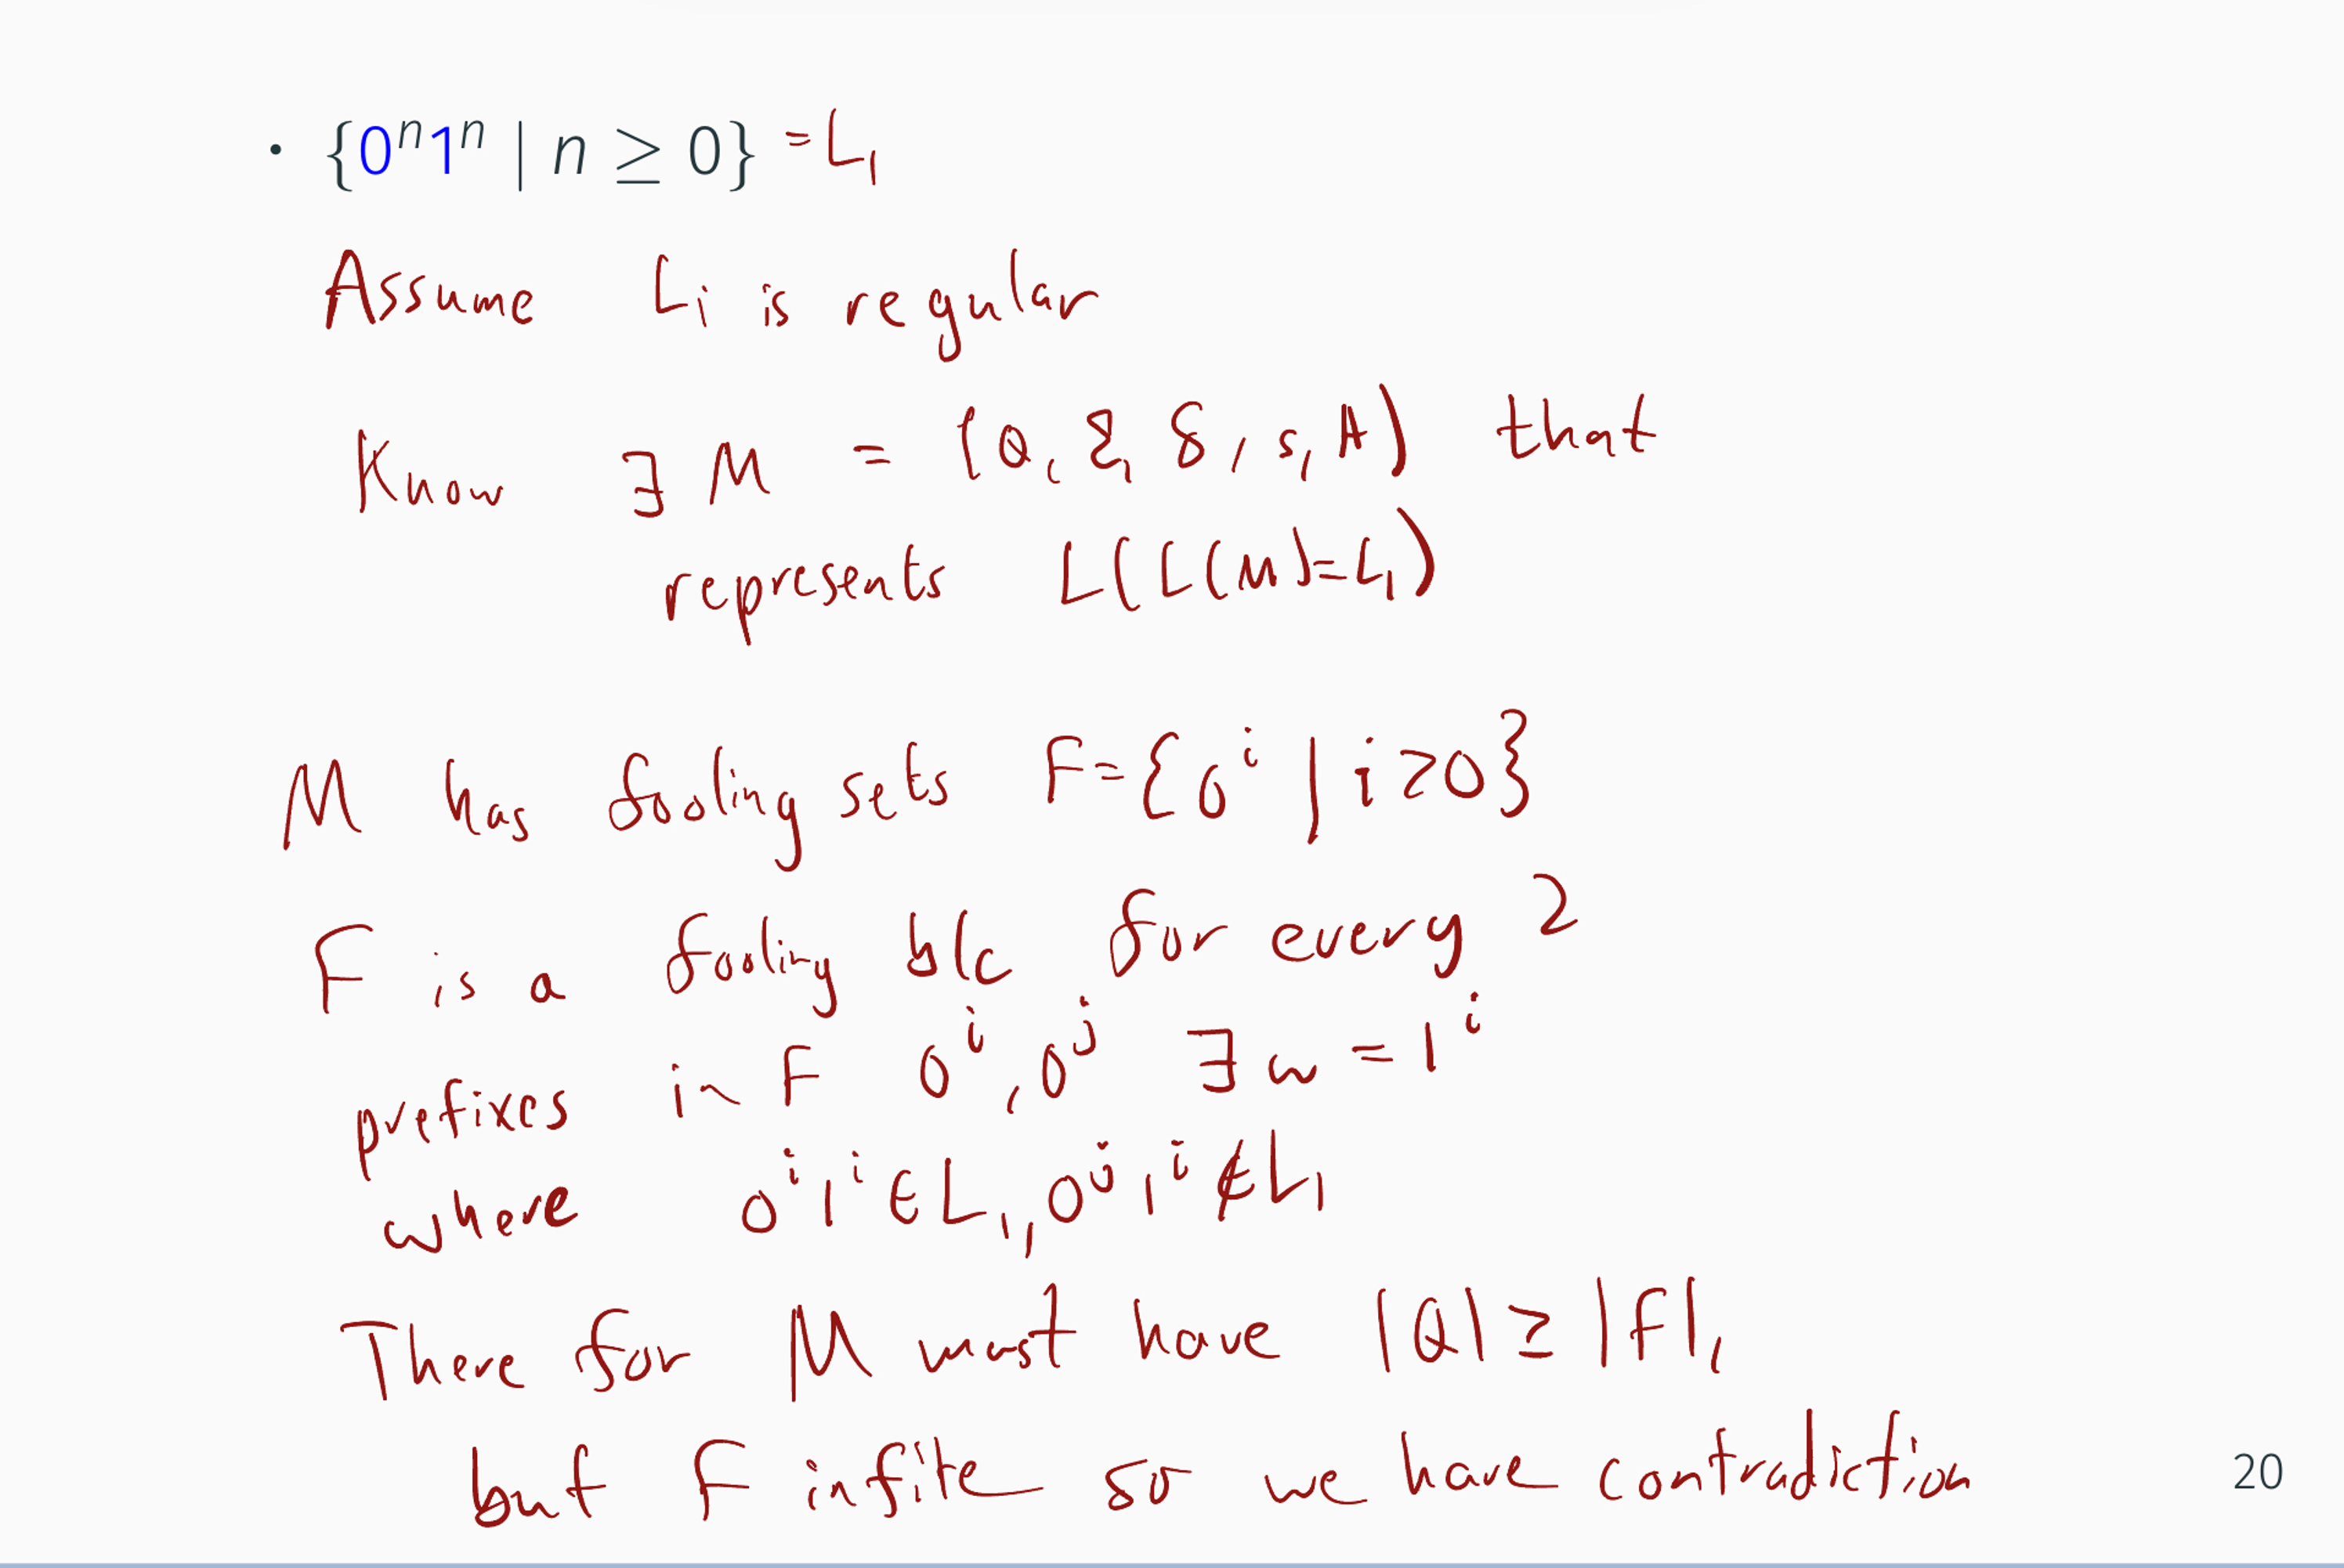 • {0ⁿ1ⁿ | n ≥ 0} = L₁
Assume L₁ is regular
Know ∃ M = (Q, Σ, δ, s, A) that
represents L (L(M) = L₁)
M has fooling sets F = {0ⁱ | i ≥ 0}
F is a fooling b/c for every 2
prefixes in F 0ⁱ, 0ʲ ∃ w = 1ⁱ
where 0ⁱ1ⁱ ∈ L₁, 0ʲ1ⁱ ∉ L₁
There for M must have |Q| ≥ |F|,
but F infite so we have contradiction
20